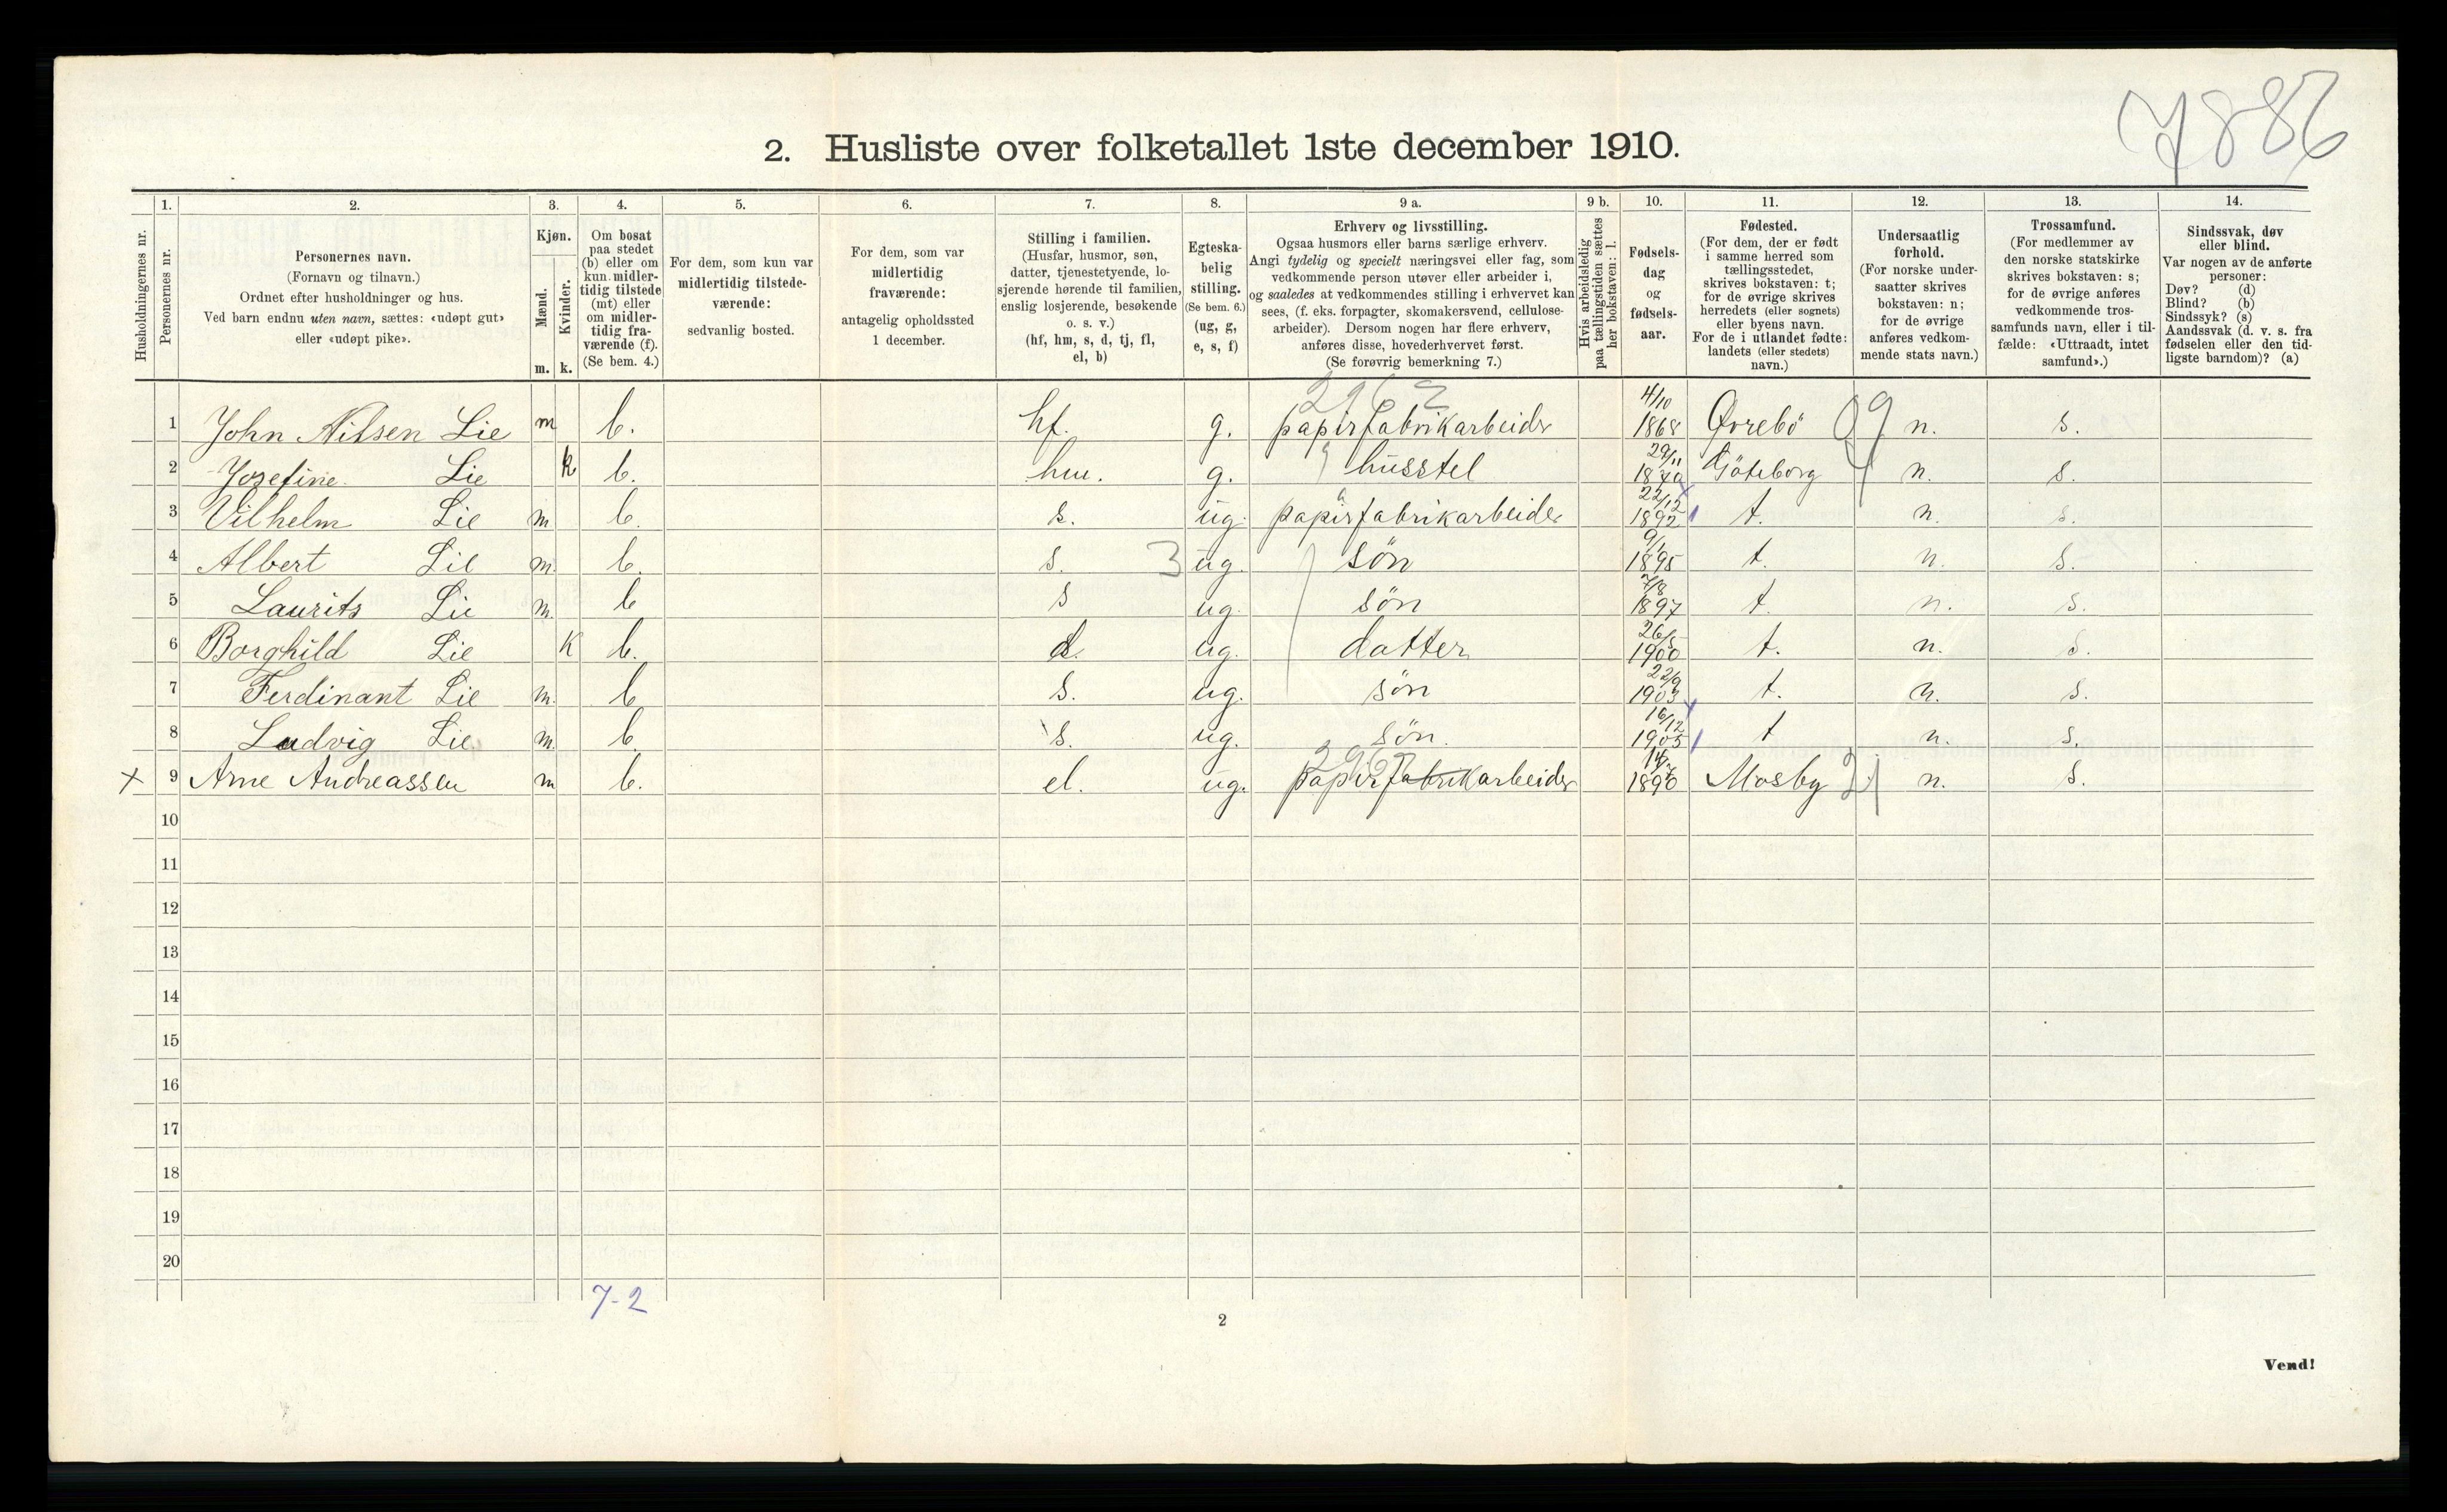 7886
2. Husliste over folketallet 1ste december 1910.
Husholdningernes nr.
1.
Personernes nr.
2.
Personernes navn.
(Fornavn og tilnavn.)
Ordnet efter husholdninger og hus.
Ved barn endnu uten navn, sættes: «udøpt gut»
eller «udøpt pike».
3.
Kjøn.
Mænd.
Kvinder.
m. k.
4.
Om bosat
paa stedet
(b) eller om
kun midler-
tidig tilstede
(mt) eller
om midler-
tidig fra-
værende (f).
(Se bem. 4.)
5.
For dem, som kun var
midlertidig tilstede-
værende:
sedvanlig bosted.
6.
For dem, som var
midlertidig
fraværende:
antagelig opholdssted
1 december.
7.
Stilling i familien.
(Husfar, husmor, søn,
datter, tjenestetyende, lo-
sjerende hørende til familien,
enslig losjerende, besøkende
o. s. v.)
(hf, hm, s, d, tj, fl,
el, b)
8.
Egteska-
belig
stilling.
(Se bem. 6.)
(ug, g,
e, s, f)
9 a.
Erhverv og livsstilling.
Ogsaa husmors eller barns særlige erhverv.
Angi tydelig og specielt næringsvei eller fag, som
vedkommende person utøver eller arbeider i,
og saaledes at vedkommendes stilling i erhvervet kan
sees, (f. eks. forpagter, skomakersvend, cellulose-
arbeider). Dersom nogen har flere erhverv,
anføres disse, hovederhvervet først.
(Se forøvrig bemerkning 7.)
9 b.
Hvis arbeidsledig
paa tællingstiden sættes
her bokstaven: l.
10.
Fødsels-
dag
og
fødsels-
aar.
11.
Fødested.
(For dem, der er født
i samme herred som
tællingsstedet,
skrives bokstaven: t;
for de øvrige skrives
herredets (eller sognets)
eller byens navn.
For de i utlandet fødte:
landets (eller stedets)
navn.)
12.
Undersaatlig
forhold.
(For norske under-
saatter skrives
bokstaven: n;
for de øvrige
anføres vedkom-
mende stats navn.)
13.
Trossamfund.
(For medlemmer av
den norske statskirke
skrives bokstaven: s;
for de øvrige anføres
vedkommende tros-
samfunds navn, eller i til-
fælde: «Uttraadt, intet
samfund».)
14.
Sindssvak, døv
eller blind.
Var nogen av de anførte
personer:
Døv? (d)
Blind? (b)
Sindssyk? (s)
Aandssvak (d. v. s. fra
fødselen eller den tid-
ligste barndom)? (a)
1 John Nilsen Lie m b. hf. g. papirfabrikarbeider 4/10 1868 Øvrebö 09 n. s.
2 Josefine Lie k b. hm. g. husstel 29/11 1870 Göteborg n. s.
3 Vilhelm Lie m b. s. ug. papirfabrikarbeider 22/12 1892 t. n. s.
4 Albert Lie m. b. s. 3 ug. søn 9/1 1895 t. n. s.
5 Laurits Lie m. b s ug. sön 7/8 1897 t. n. s.
6 Borghild Lie K b. d. ug. datter 26/5 1900 t. n. s.
7 Ferdinant Lie m. b s. ug. sön 22/9 1903 t. n. s.
8 Ludvig Lie m. b. s. ug. sön. 16/12 1905 t n. s.
x 9 Arne Andreassen m b. el. ug. papirfabrikarbeider 1890 Mosby 21 n. s.
10
11
12
13
14
15
16
17
18
19
20
7-2
2
Vend!